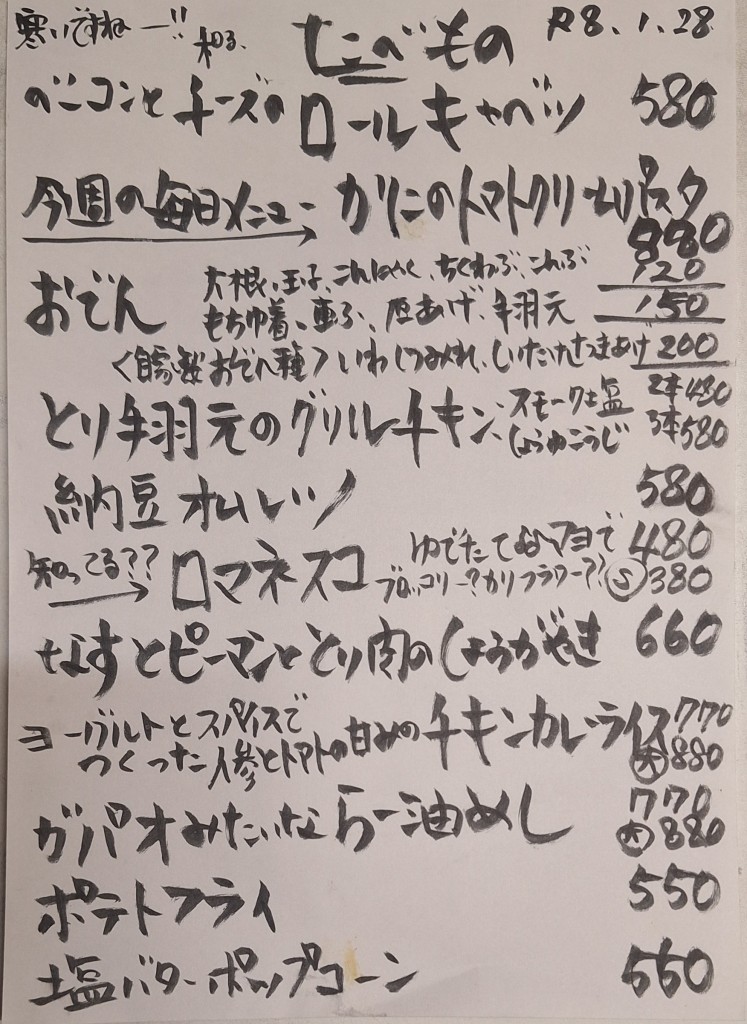 寒いですねー!! たべもの R8.1.28
ベーコンとチーズのロールキャベツ 580
今週の毎日メニュー カリニのトマトクリームパスタ
880
おでん 大根、玉子、こんにゃく、ちくわぶ、こんぶ 120
もち巾着、車ふ、厚あげ、手羽元 150
〈自家製おでん種〉いわしつみれ、しいたけさつまあげ 200
とり手羽元のグリルチキン スモーク塩 2本480
しょうゆこうじ 3本580
納豆オムレツ 580
知ってる?? ロマネスコ ゆでたてをマヨで 480
ブロッコリー?カリフラワー?? S 380
なすとピーマンととり肉のしょうがやき 660
ヨーグルトとスパイスで
つくった人参とトマトの甘みのチキンカレーライス 770
大 880
ガパオみたいならー油めし 770
大 880
ポテトフライ 550
塩バターポップコーン 550